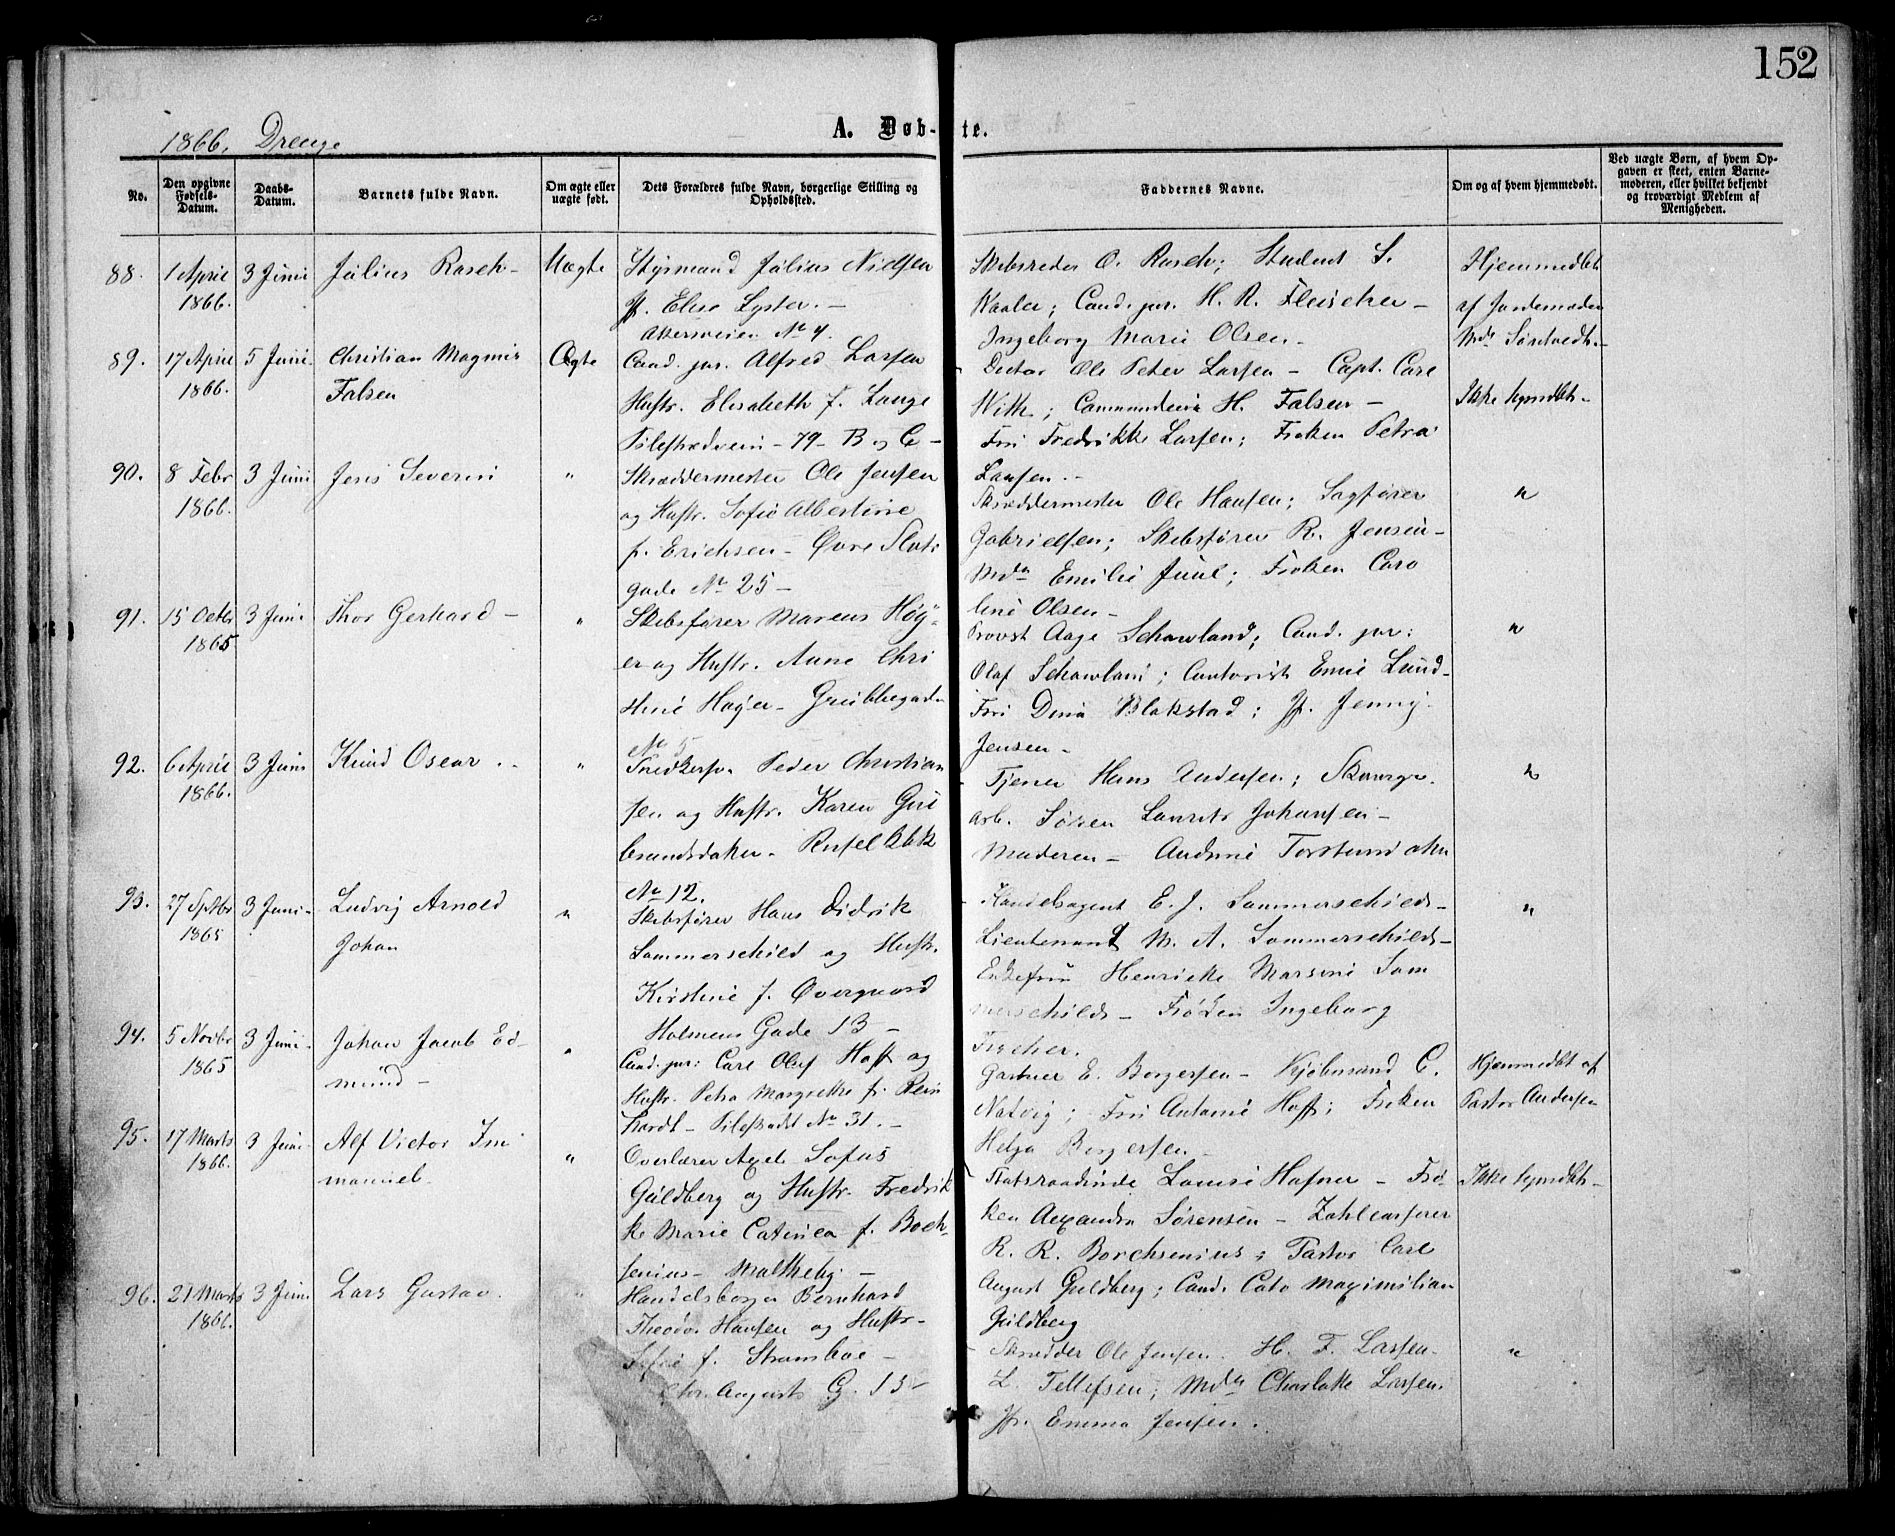 152
1866. Drenge
A. Døb-te.
No.
Den opgivne Fødsels-Datum.
Daabs-Datum.
Barnets fulde Navn.
Om ægte eller uægte født.
Dets Forældres fulde Navn, borgerlige Stilling og Opholdssted.
Faddernes Navne.
Om og af hvem hjemmedøbt.
Ved uægte Børn, af hvem Opgaven er skeet, enten Barnemoderen, eller hvilket bekjendt og troværdigt Medlem af Menigheden.
88. 1 April 3 Juni Julius Rasch- Uægte Styrmand Julius Nielsen
1866. Jf. Elise Lyster.-
Akersveien No 4.
Skibsreder O. Rasch; Student S.
Waaler; Cand. jur. H. R. Fleischer-
Ingeborg Marie Olsen-
Hjemmedbt
af Jordemoder
Md.
89. 17 April 5 Juni Christian Magnus Ægte Cand. jur. Alfred Larsen
1866. Falsen Hustr. Elisabeth f. Lange
Pilestrædvein - 79- B og C-
Doctor Ole Peter Larsen - Capt. Carl
With; Commandeur H. Falsen -
Fru Fredrikke Larsen; Frøken Petra
Larsen..
Ikke hjmdbt-
90. 8 Febr 3 Juni Jens Severin " Skræddermester Ole Jensen
1866. og Hustr. Sofie Albertine
f. Erichsen - Øvre Slots
gade No 25 -
Skræddermester Ole Hansen; Sagfører
Gabrielsen; Skibsfører R. Jensen-
Mda Emilie Juul; Frøken Caro
line Olsen-
"
91. 15 Octbr 3 Juni Thor Gerhard - " Skibsfører Marcus Høy-
1865 er og Hustr. Anne Chri
stine Høyer- Grubbegaden
No 5
Provst Aage Schavland; Cand. jur:
Olaf Schavland; Contorist Emil Lund-
Fru Dina Blakstad; Jf. Jenny
Jensen-
"
92. 6 April 3 Juni Knud Oscar .. " Snedkersv. Peder Christian
1866. sen og Hustr. Karen Gul
brandsdatter.
No 12.
Tjener Hans Andersen;
arb. Søren Laurits Johansen-
Moderen-
"
93. 27 Sptbr 3 Juni- Ludvig Arnold " Skibsfører Hans Didrik
1865 Johan Sommerschild og Hustr.
Kirstine f. Overgaard
Holmens Gade 13 -
Handelsagent E. J. Sommerschild-
Lieutenant M. A. Sommerschild-
Enkefru Henrikke Marsine Som
merschild- Frøken Ingeborg
Fischer.
"
94. 5 Novbr 3 Juni- Johan Jacob Ed- " Cand. jur: Carl Oluf Hoff og
1865 mund- Hustr. Petra Margrethe f. Rein
hardt- Pilestrædt No 31.-
Gartner E. Borgersen- Kjøbmand C.
Natvig; Fru Antonie Hoff; Frøken
Helga Borgersen-
Hjemmedbt af
Pastor Andersen
95. 17 Marts 3 Juni- Alf Victor Im " Overlærer Axel Sofus
1866. manuel- Guldberg og Hustr. Fredrik
ke Marie Catinca f. Borch-
senius- Maltheby-
Statsraadinde Louise Hafner - Frø
ken Alexandra Sørensen -
R. R. Borchsenius; Pastor Carl
August Guldberg; Cand. Cato Maximilian
Guldberg
Ikke hjmdbt-
96. 21 Marts 3 Juni Lars Gustav. " Handelsborger Bernhard
1866. Theodor Hansen og Hustr-
Sofie f. Stramboe -
Chr. Augusts G. 13-
Skrædder Ole Jensen. H. F. Larsen-
L. Tellefsen; Mda Charlotte Larsen.
Jfr. Emma Jensen.
"